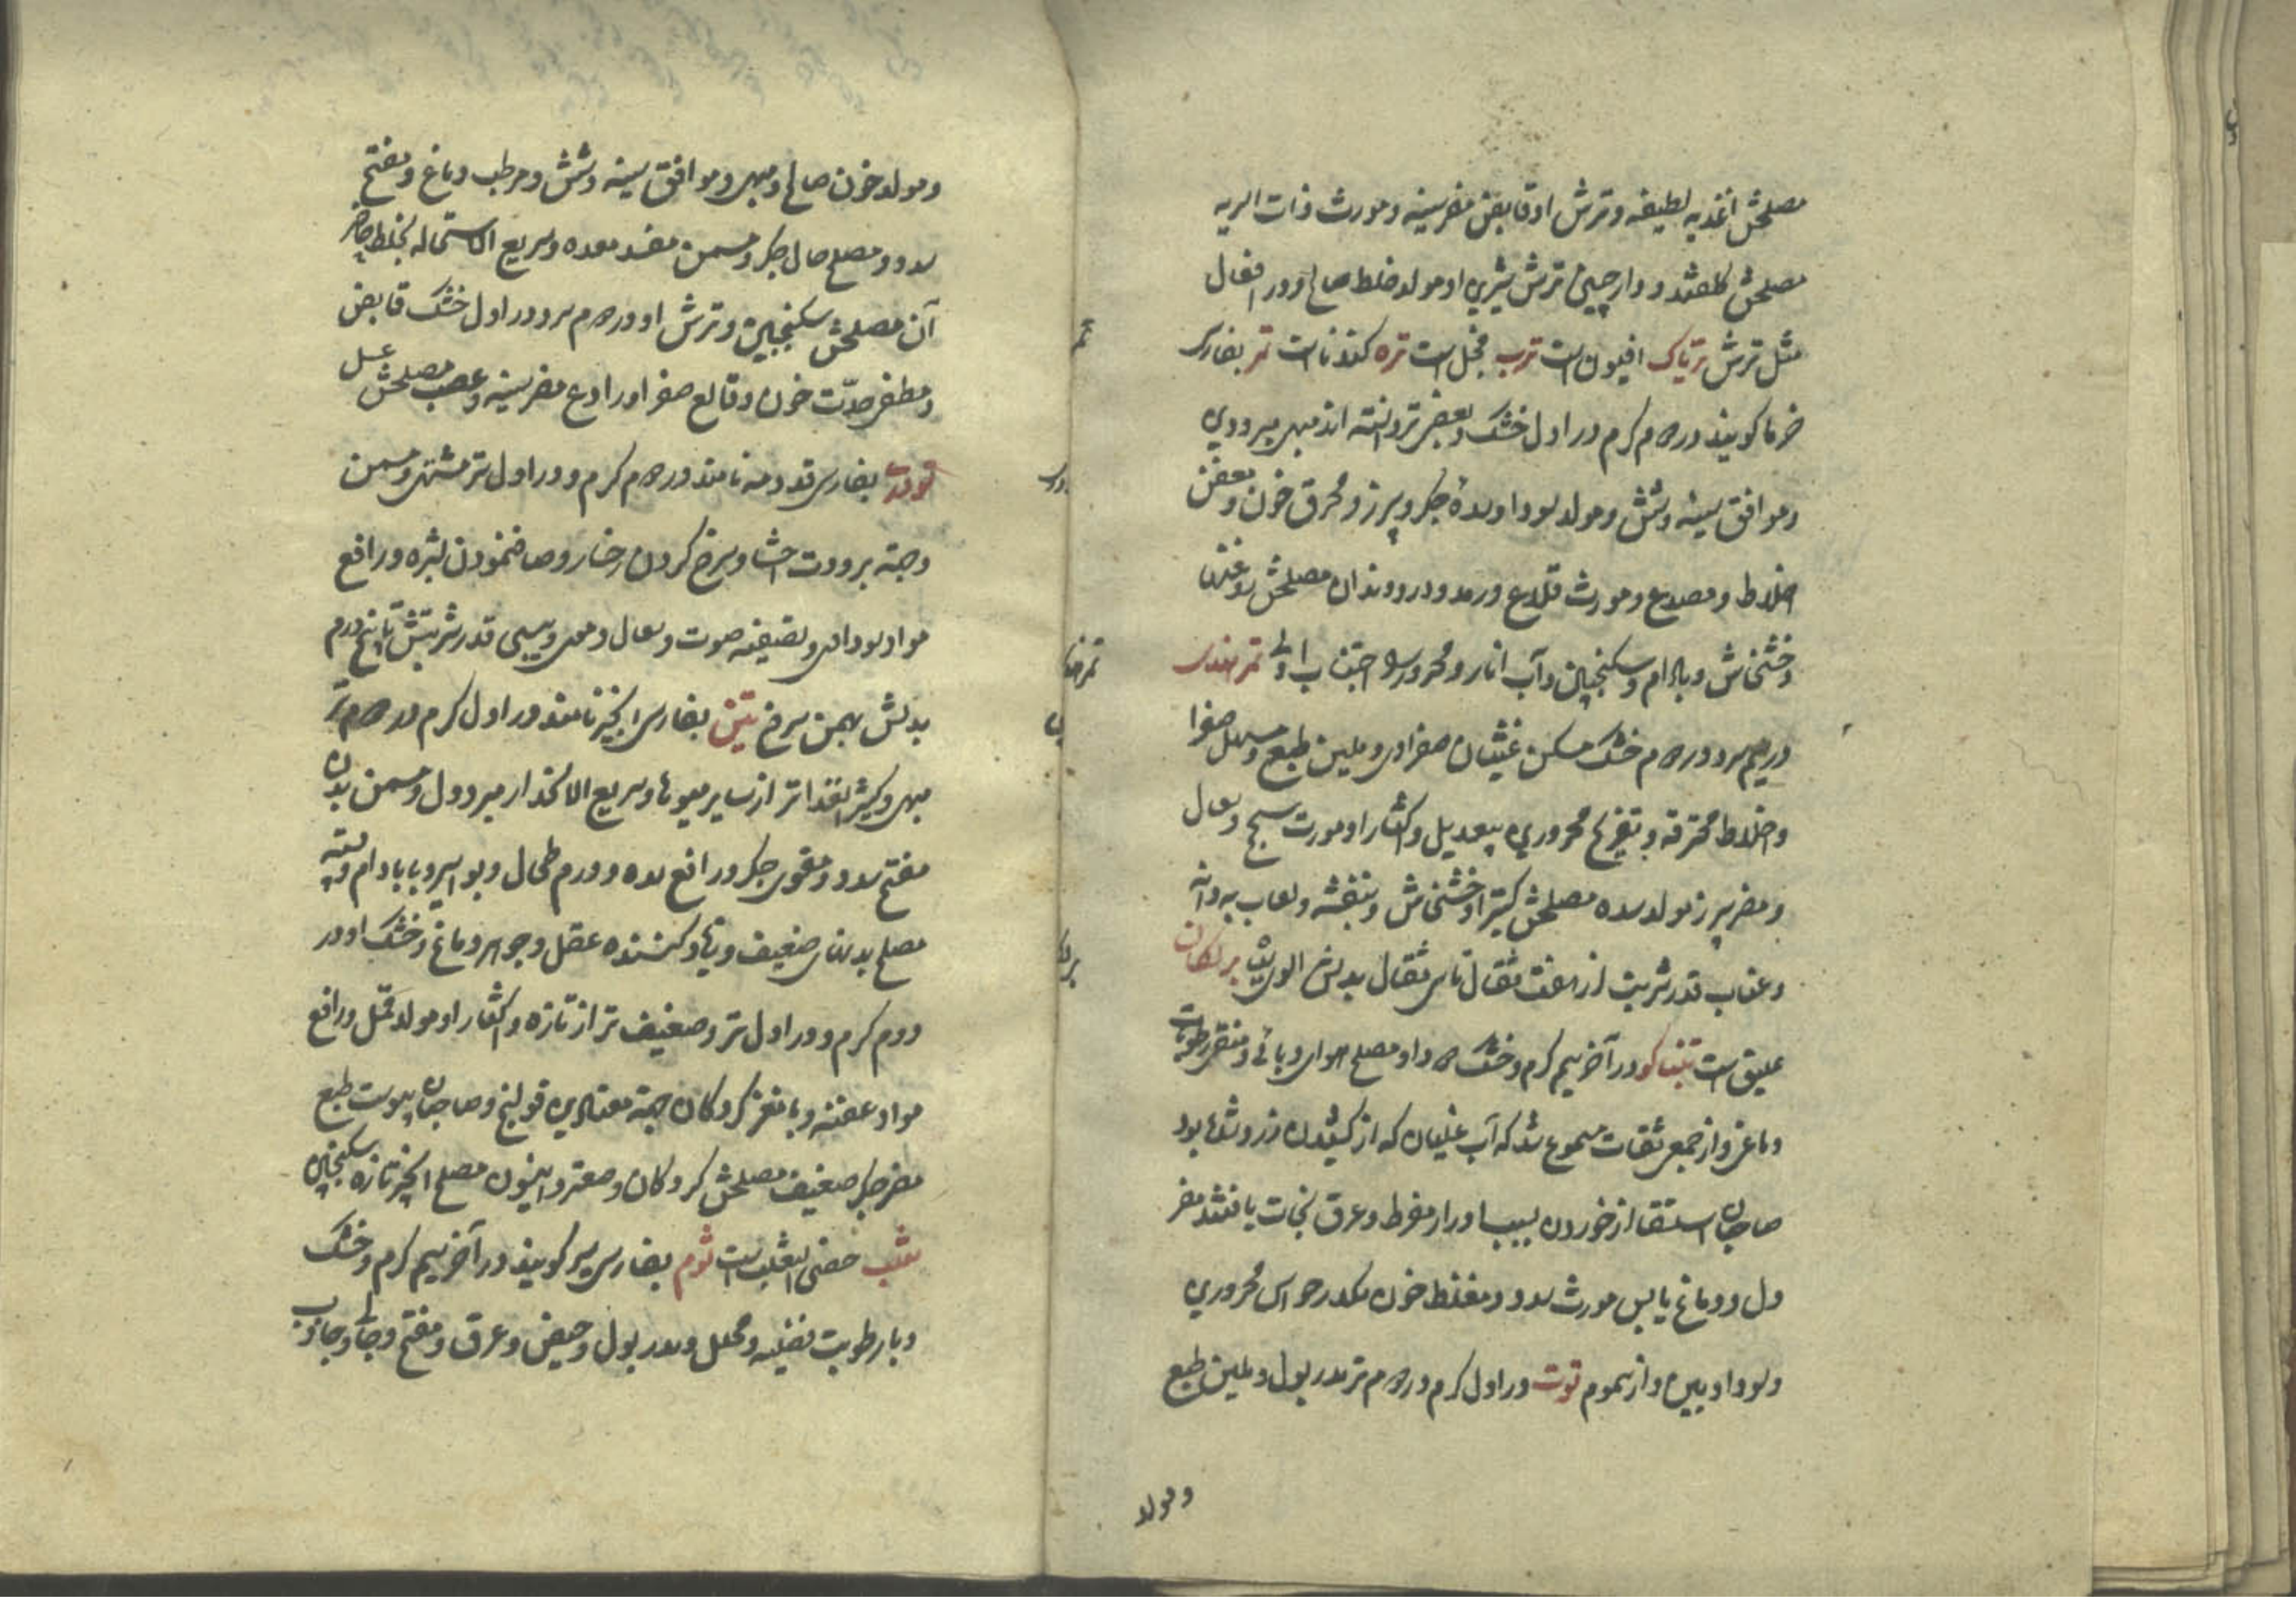 مصلحش اغذیه لطیفه و ترش او قابض مضر سینه و مورث ذات الریه
مصلحش کلقند و دارچینی ترش شیرین او مولد خلط صالح و در افعال
مثل ترش تریاک افیون است ترب فجل است تره کندناست تمر بفارسی
خرما کویند در دوم کرم در اول خشک و بعضی تر دانسته اند مبهی مبرودین
و موافق سینه و شش و مولد سودا و سده جکر و سپرز و محرق خون و معفن
اخلاط و مصدع و مورث قلاع و رمد و درد دندان مصلحش روغن
خشخاش و بادام و سکنجبین و آب انار و محرور را اجتناب اولی تمر هندی
در سیم سرد در دوم خشک مسکن غثیان صفراوی و ملین طبع و مسهل صفرا
و اخلاط محترقه و تفریح محرورین بتعدیل و اکثار او مورث سحج و سعال
و مضر سپرز مولد سده مصلحش کتیرا و خشخاش و بنفشه و لعاب به دانه
و عناب قدر شربت از هفت مثقال تا سی مثقال بدلش الوی
علیق است تنباکو در آخر سیم کرم و خشک دود او مصلح هوای وبائی و رطوبات
دماغی و از جمعی ثقات مسموع شد که آب غلیان که از کشیدن زرد شده بود
صاحبان استسقا از خوردن بسبب ادرار مفرط و عرق نجات یافتند مضر
دل و دماغ یابس مورث سدد و مغلظ خون مکدر حواس محرورین
و سوداویین و از سموم توت در اول کرم در دوم تر مدر بول و ملین طبع
و مولد
و مولد خون صالح و مبهی و موافق سینه و شش و مرطب دماغ و مفتح
سدد و مصلح حال جکر و مسمن مفسد معده و سریع الاستحاله بخلط حاضر
آن مصلحش سکنجبین و ترش او در دوم سرد در اول خشک قابض
و مطفی حدّت خون و قالع صفرا و رادع مضر سینه و عصب مصلحش عسل
تودری بفارسی قدومه نامند در دوم کرم و در اول تر مشتهی و مسمن
و جهة برودت احشا و سرخ کردن رخسار و صاف نمودن بشره و رافع
مواد سوداوی و تصفیه صوت و سعال و معی و سپسی قدر شربتش تا پنج درم
بدلش بهمن سرخ تین بفارسی انجیر نامند در اول کرم در دوم تر
مبهی و کثیر الغذا تر از سایر میوها و سریع الانحدار مبرد دل و مسمن بدن
مفتح سدد و مقوی جکر و رافع سده و ورم طحال و بواسیر و با بادام و پسته
مصلح بدنهای ضعیف و زیاد کننده عقل و جوهر دماغ و خشک او در
دوم کرم و در اول تر و ضعیف تر از تازه و اکثار او مولد قمل و رافع
مواد عفنه و با مغز کردکان جهة معتادین قولنج و صاحبان یبوست طبع
مضر جکر ضعیف مصلحش کردکان و صعتر و انیسون مصلح انجیر تازه سکنجبین
ثعلب خصی الثعلب است ثوم بفارسی سیر کویند در آخر سیم کرم و خشک
و با رطوبت فضلیه و محلل و مدر بول و حیض و عرق و مفتح و جالی و جاذب